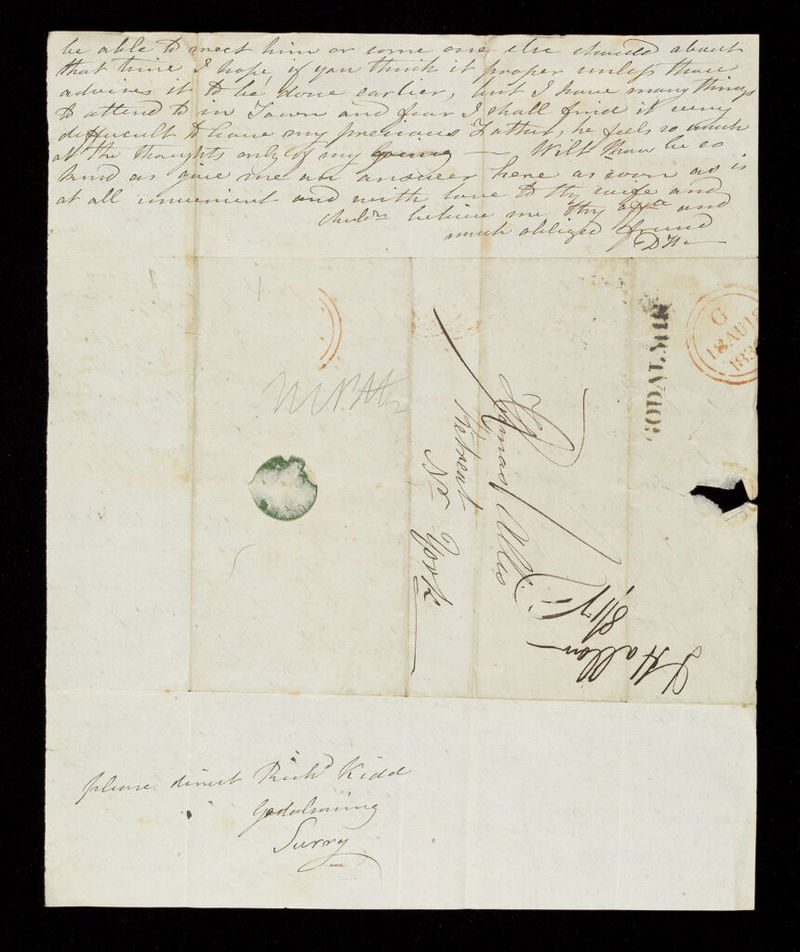 be able to meet him or some one else should about
that time I hope if you think it proper unless thou
advises it to be done earlier, but I have many things
to attend to in Town and fear I shall find it very
difficult to leave my precious Father, he feels so much
at the thoughts only of my going — Wilt thou be so
kind as give me an answer here as soon as is
at all convenient and with love to thy wife and
childn believe me thy affte and
much obliged friend
GODALMING
G
18 AU 18
183
Thomas Allis
Retreat
Nr York
8/17
please direct Richd Kidd
Godalming
Surry